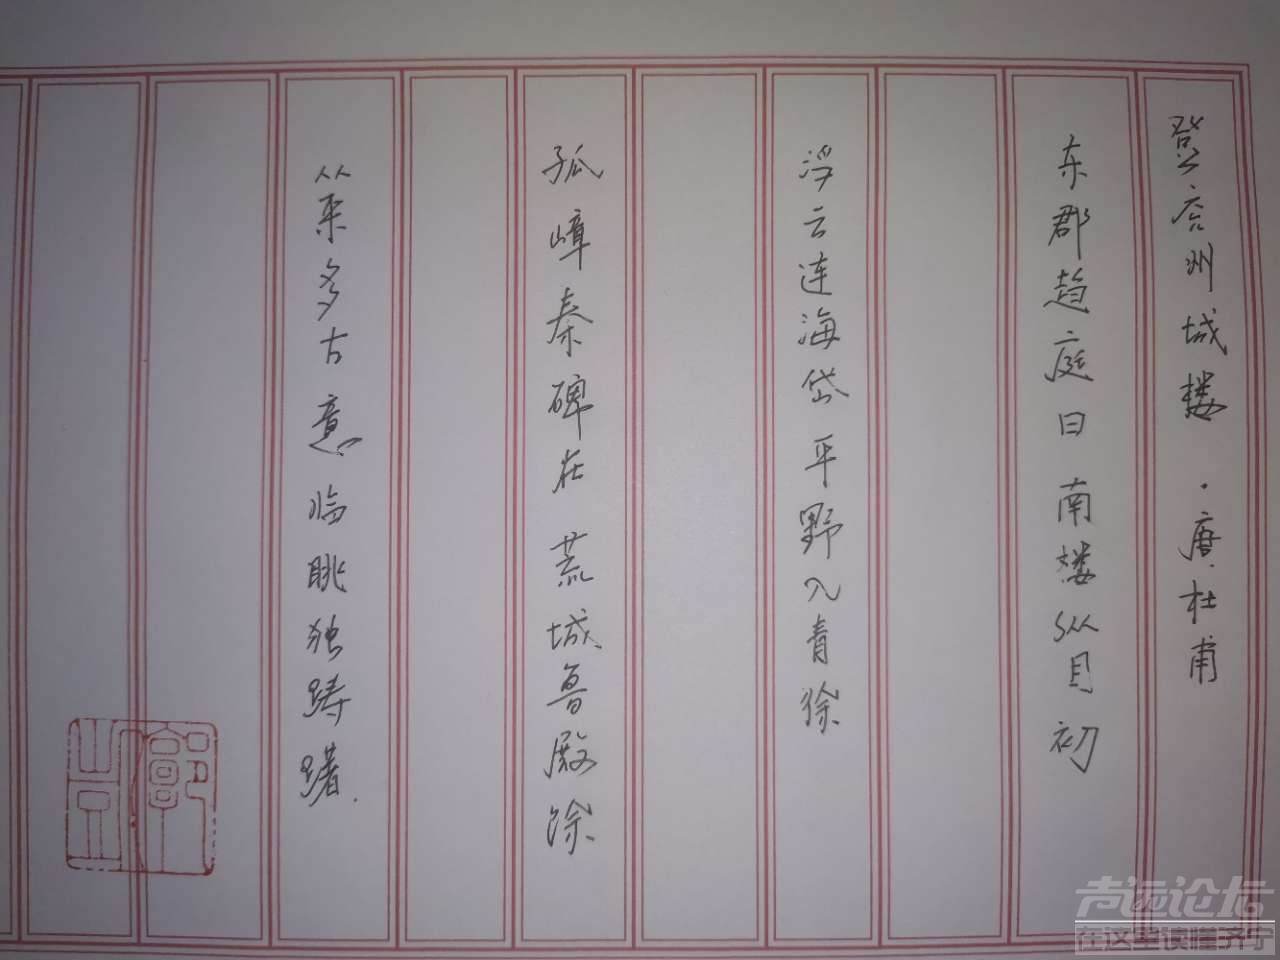 登兖州城楼·唐杜甫
东郡趋庭日 南楼纵目初
浮云连海岱 平野入青徐
孤嶂秦碑在 荒城鲁殿馀
从来多古意 临眺独踌躇.
声远论坛
在这里读懂济宁